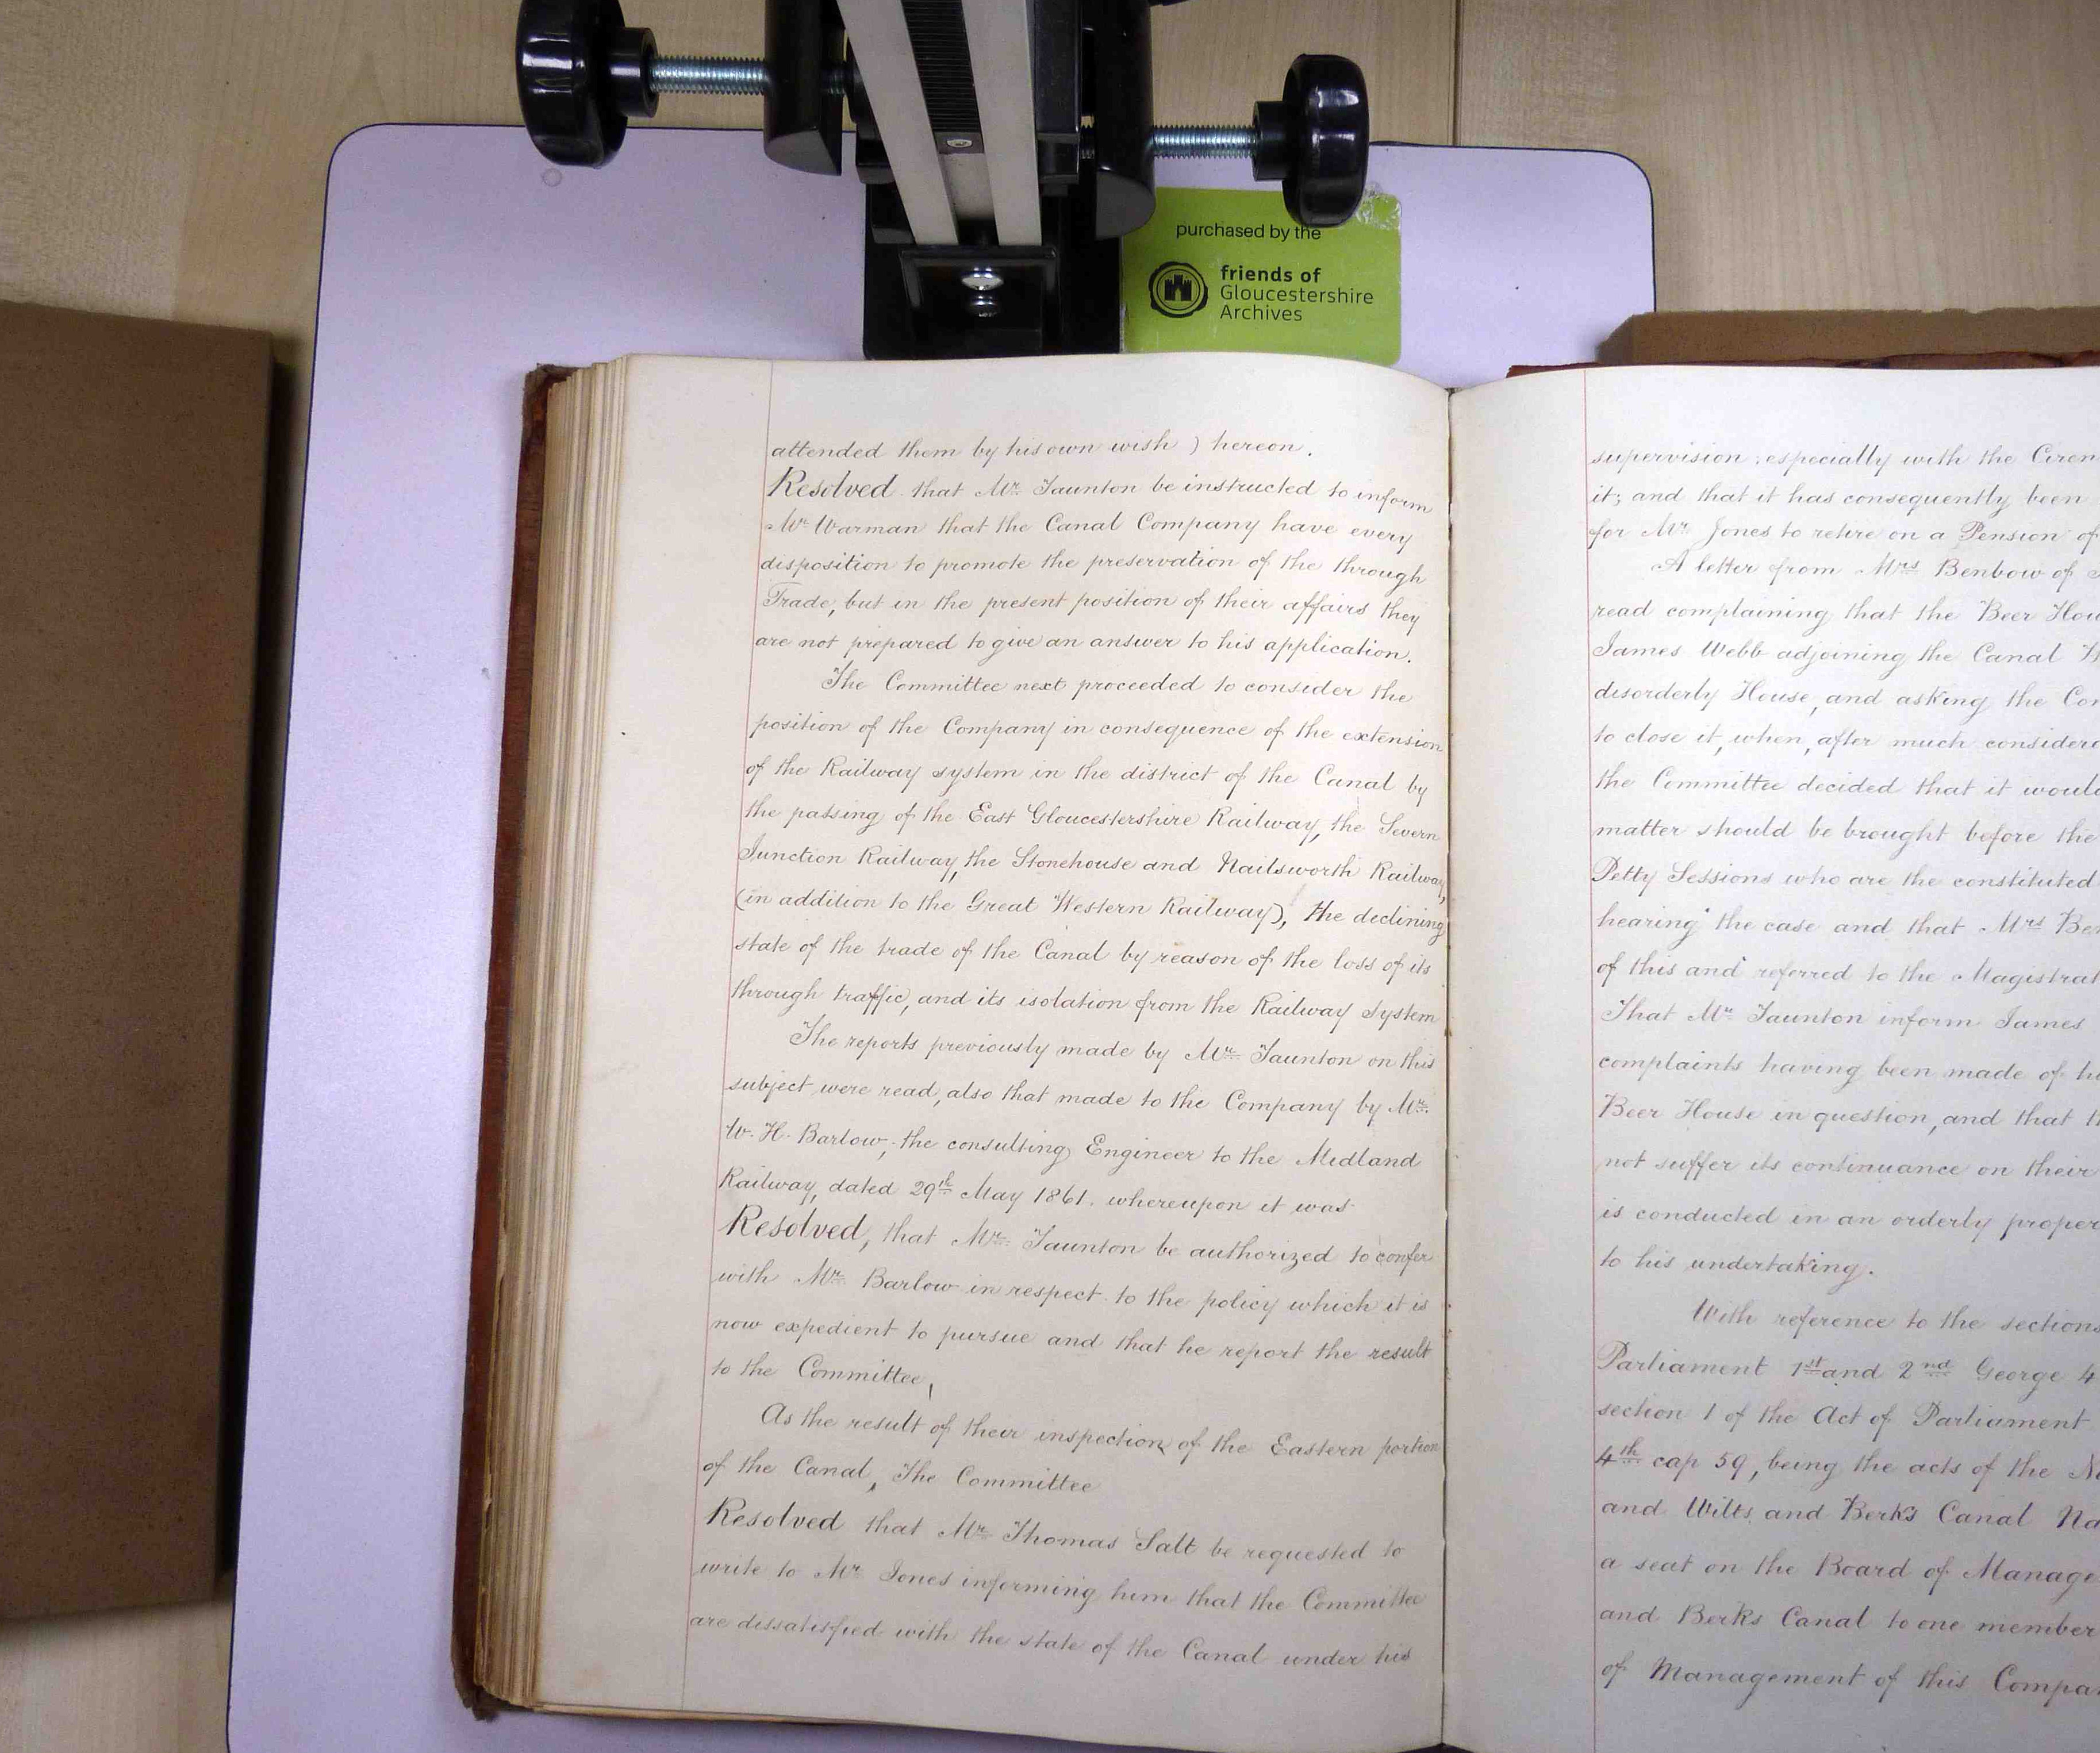 purchased by the
friends of
Gloucestershire
Archives
attended them by his own wish ) hereon.
Resolved that Mr. Taunton be instructed to inform
Mr. Warman that the Canal Company have every
disposition to promote the preservation of the through
Trade, but in the present position of their affairs they
are not prepared to give an answer to his application.
The Committee next proceeded to consider the
position of the Company in consequence of the extension
of the Railway system in the district of the Canal by
the passing of the East Gloucestershire Railway, the Severn
Junction Railway, the Stonehouse and Nailsworth Railway,
(in addition to the Great Western Railway), the declining
state of the trade of the Canal by reason of the loss of its
through traffic, and its isolation from the Railway System
The reports previously made by Mr. Taunton on this
subject were read, also that made to the Company by Mr.
W. H. Barlow, the consulting Engineer to the Midland
Railway, dated 29th May 1861. whereupon it was
Resolved, that Mr. Taunton be authorized to confer
with Mr. Barlow in respect to the policy which it is
now expedient to pursue and that he report the result
to the Committee,
As the result of their inspection of the Eastern portion
of the Canal, The Committee
Resolved that Mr. Thomas Salt be requested to
write to Mr. Jones informing him that the Committee
are dissatisfied with the state of the Canal under his
supervision; especially with the Ciren
it; and that it has consequently been
for Mr. Jones to retire on a Pension of
A letter from Mrs. Benbow of
read complaining that the Beer Hou
James Webb adjoining the Canal W
disorderly House, and asking the Co
to close it, when, after much considera
the Committee decided that it would
matter should be brought before the
Petty Sessions who are the constituted
hearing the case and that Mrs Ben
of this and referred to the Magistrat
That Mr. Taunton inform James
complaints having been made of h
Beer House in question, and that t
not suffer its continuance on their
is conducted in an orderly proper
to his undertaking.
With reference to the sections
Parliament 1st and 2nd George 4
section 1 of the Act of Parliament
4th cap 59, being the acts of the No
and Wilts and Berks Canal Na
a seat on the Board of Manage
and Berks Canal to one member
of Management of this Compa